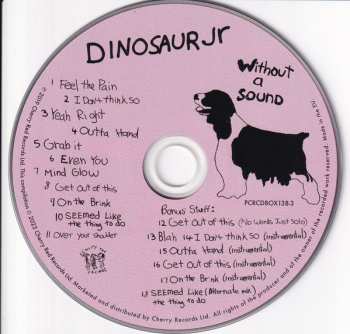 DINOSAUR Jr
Without
a
SOUND
1 Feel the Pain
2 I Don't think so
3 Yeah Right
4 Outta Hand
5 Grab it
6 Even You
7 Mind Glow
8 Get out of this
9 On the Brink
10 SEEMED Like
the thing to do
11 Over your shoulder
PCRCDBOX138-3
Bonus Stuff:
12 Get out of this (No Words Just Solo)
13 Blah 14 I Don't think SO (instrumental)
15 Outta Hand (instrumental)
16 Get out of this (instrumental)
17 On the Brink (instrumental)
18 Seemed Like (Alternate mix)
the thing to do
Cherry Red Records Ltd. Marketed and distributed by Cherry Records Ltd. All rights of the producer and of the owner of the recorded work reserved. Made in the EU